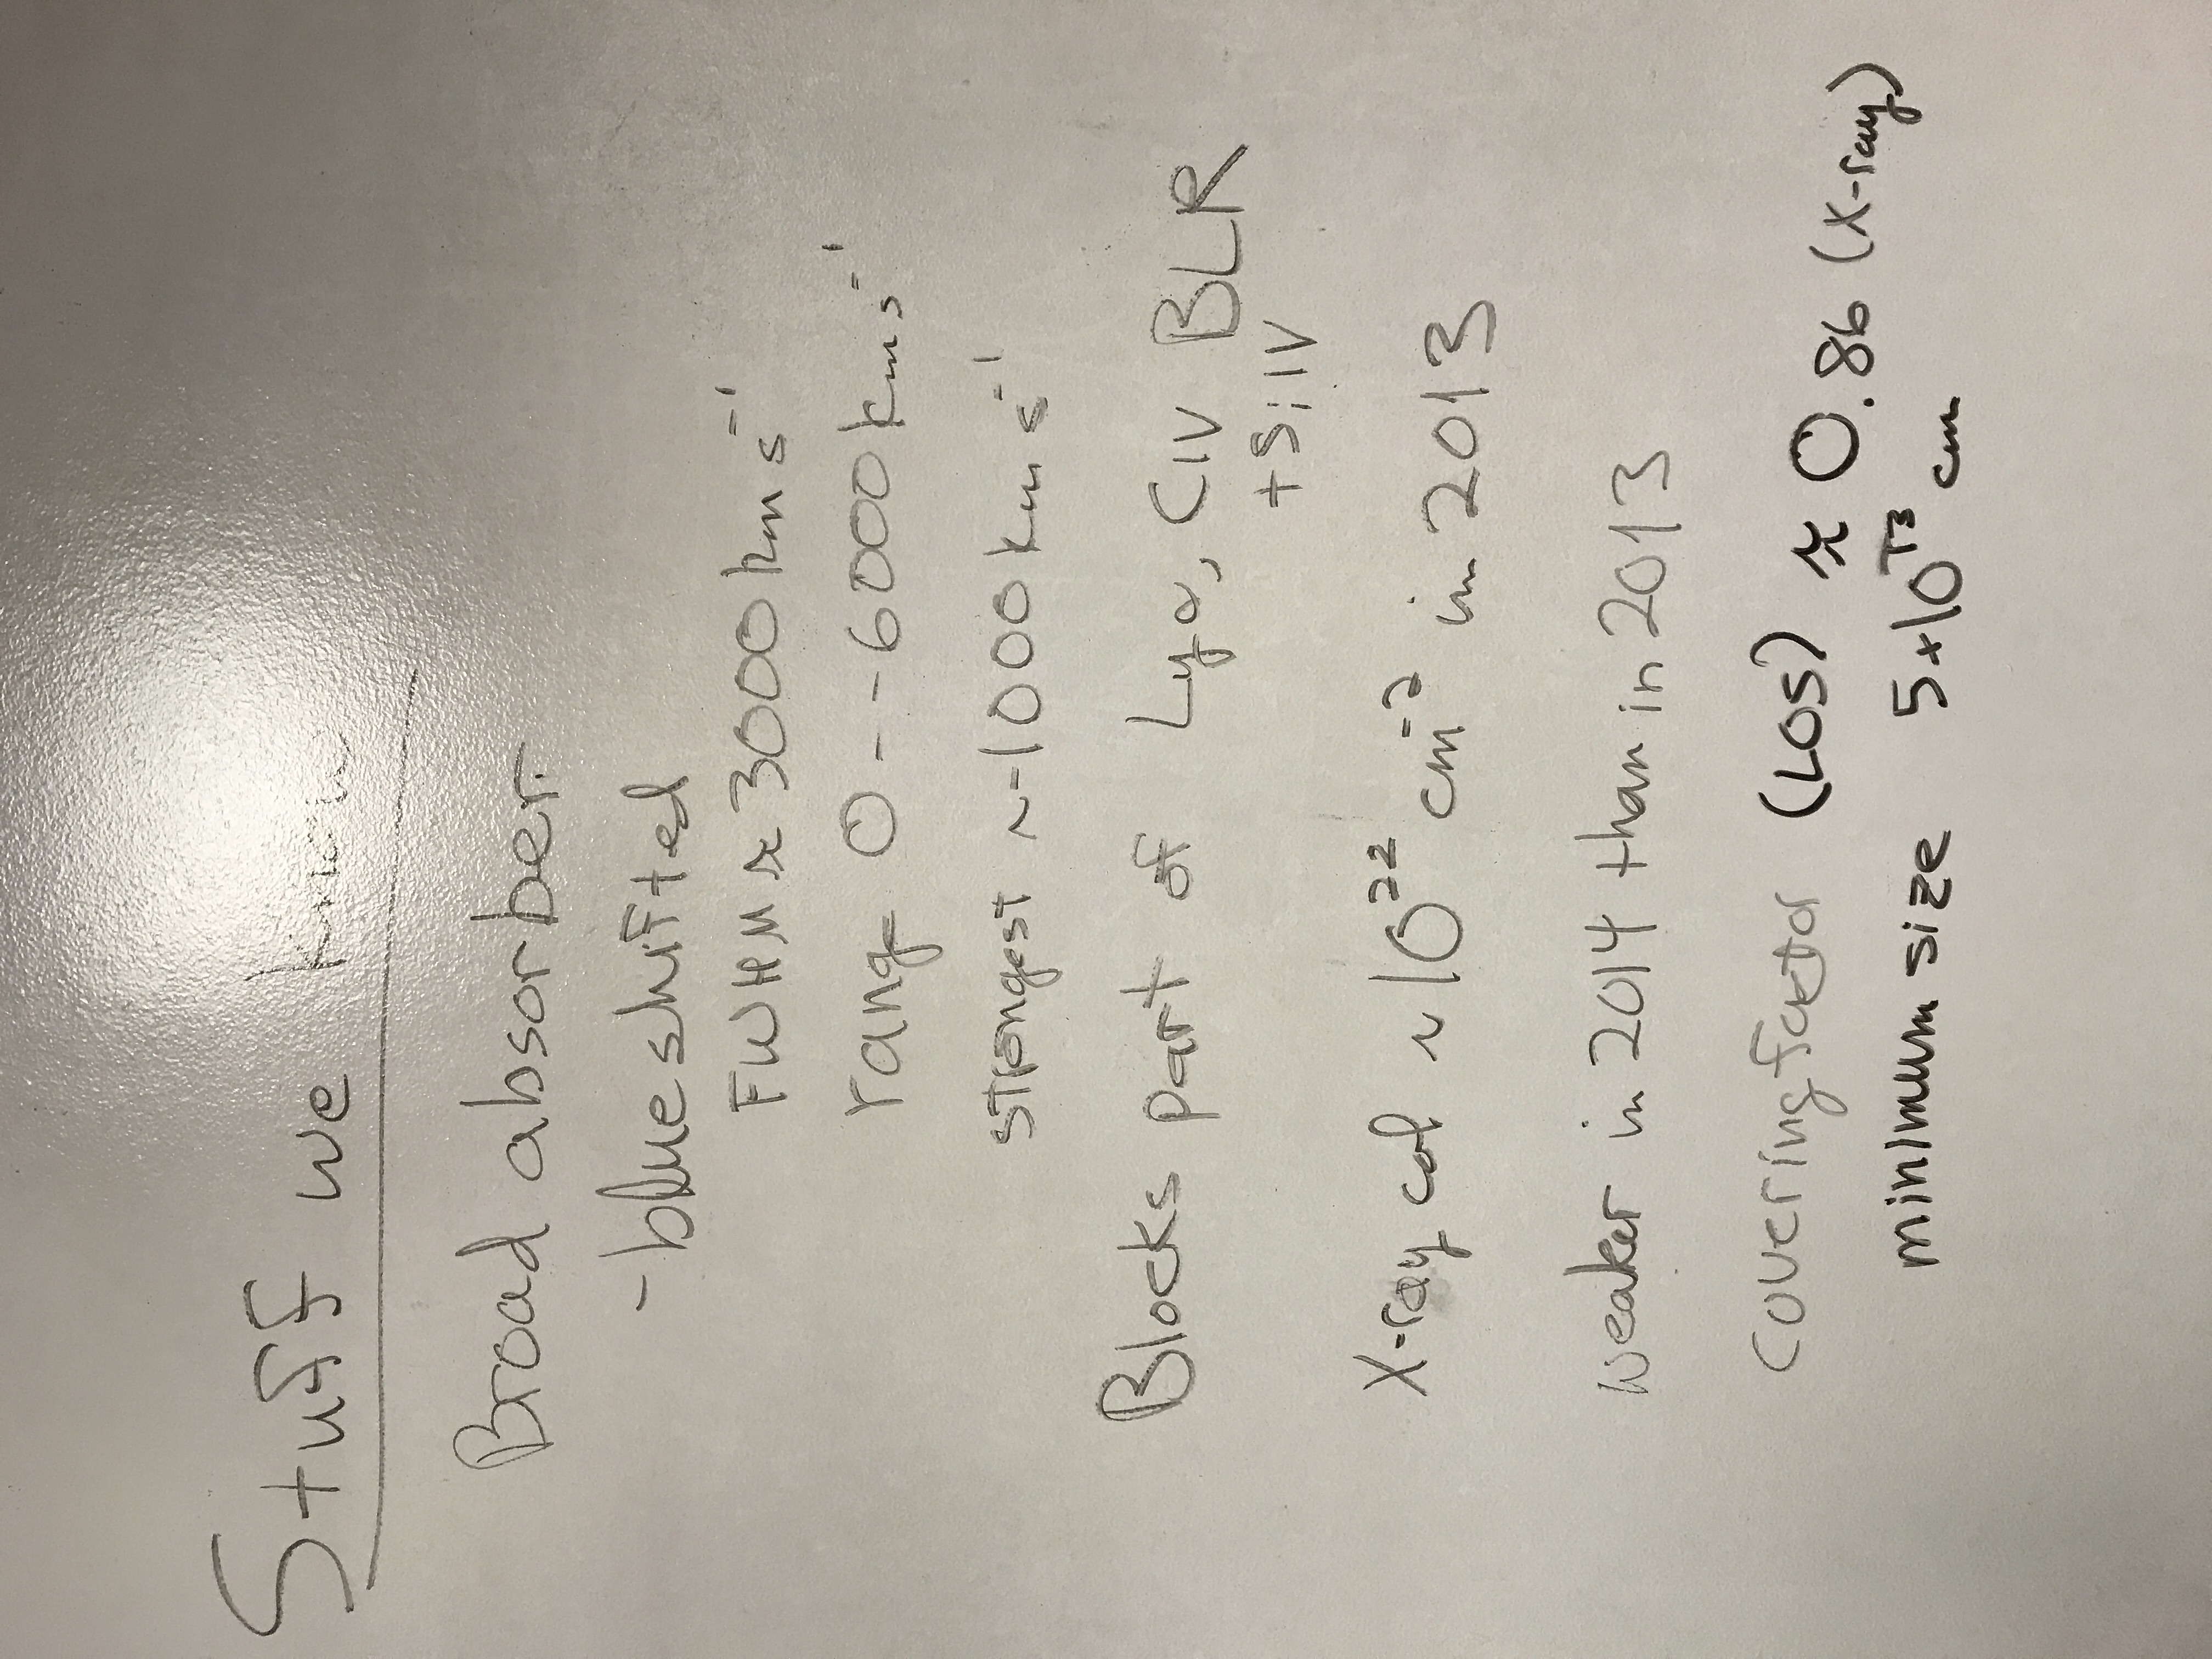 Stuff we know
Broad absorber.
- blueshifted
FWHM ≈ 3000 km s⁻¹
range 0 - -6000 km s⁻¹
strongest ~ -1000 km s⁻¹
Blocks part of Lyα, CIV BLR
+ SiIV
X-ray col ~ 10²² cm⁻² in 2013
weaker in 2014 than in 2013
covering factor (LOS) ≈ 0.86 (X-ray)
minimum size 5×10¹³ cm